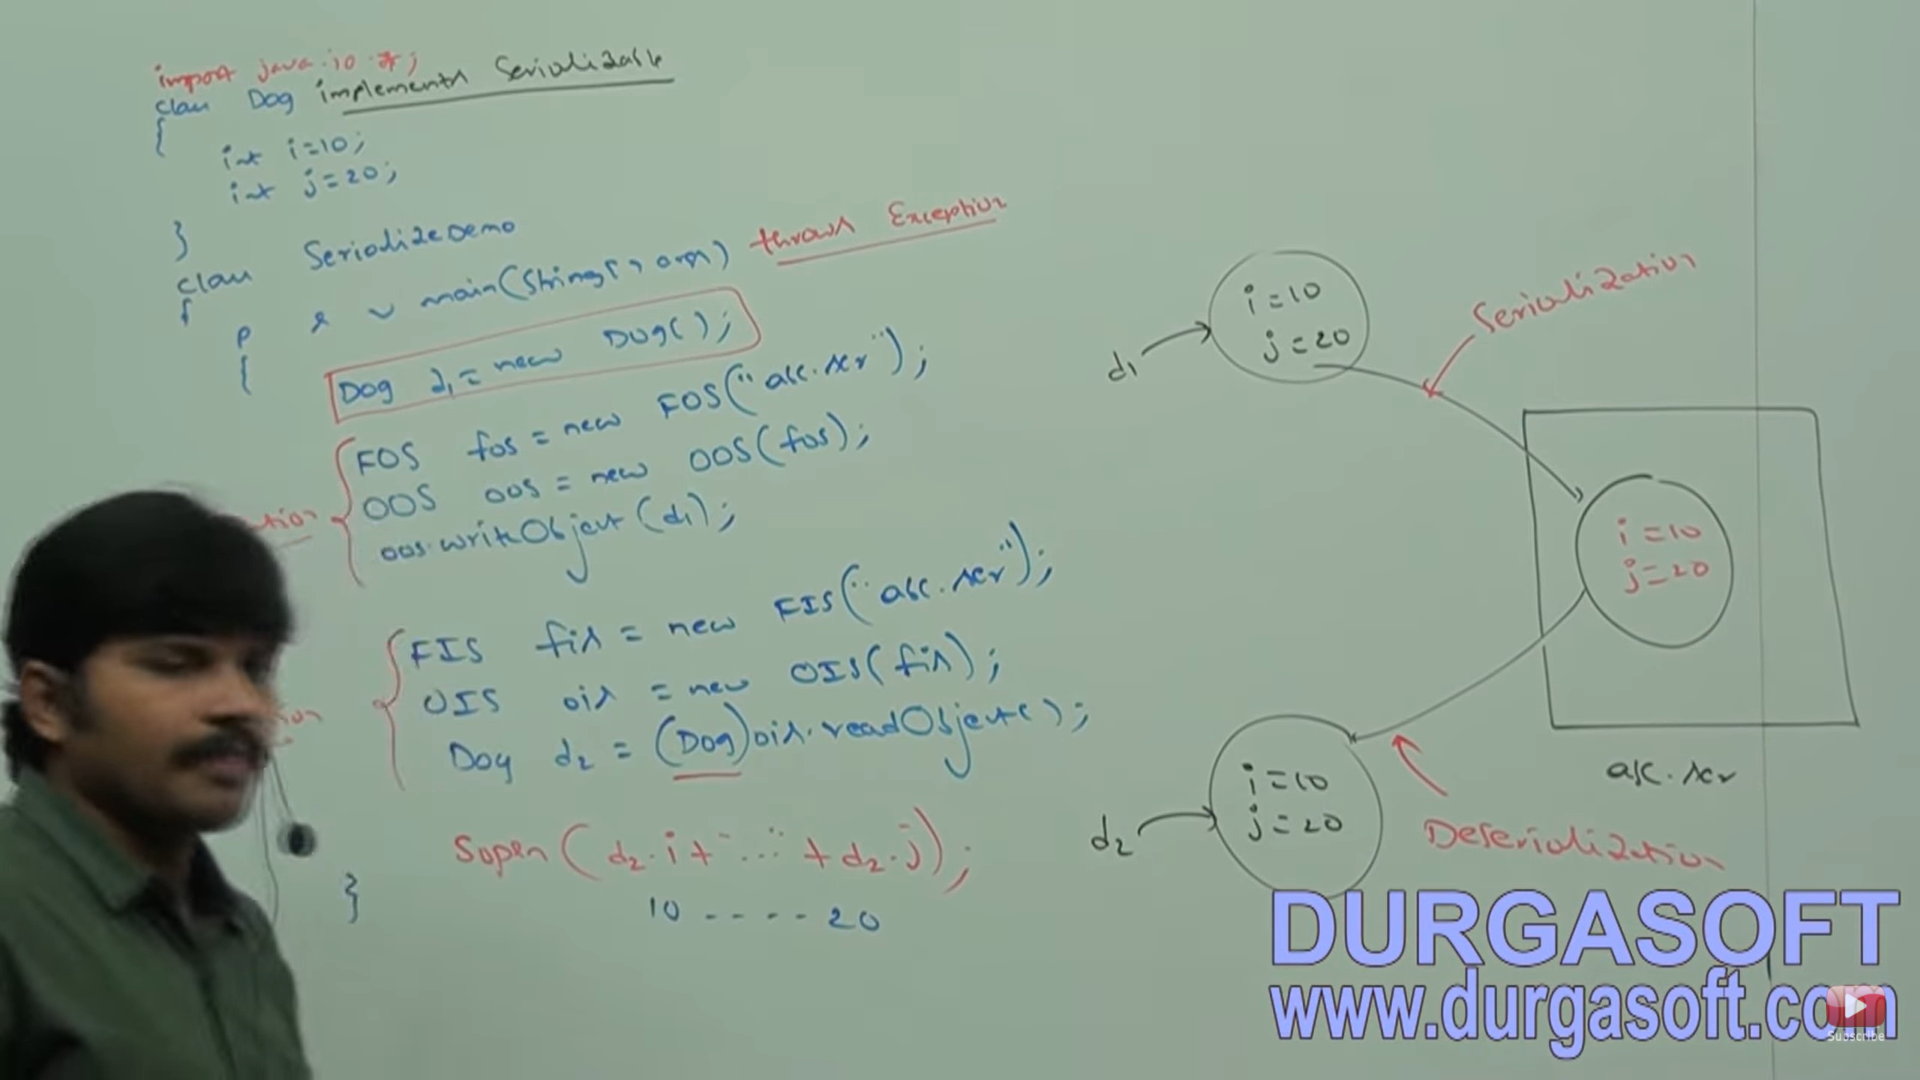 import java.io.*;
class Dog implements Serializable
{
int i=10;
int j=20;
}
class SerializeDemo
{
p s v main(String[] args) throws Exception
{
Dog d1 = new Dog();
FOS fos = new FOS("abc.ser");
OOS oos = new OOS(fos);
oos.writeObject(d1);
FIS fis = new FIS("abc.ser");
OIS ois = new OIS(fis);
Dog d2 = (Dog)ois.readObject();
Sopln(d2.i+"..."+d2.j);
}
10 ---- 20
i=10
j=20
d1
Serialization
i=10
j=20
abc.ser
i=10
j=20
d2
Deserialization
DURGASOFT
www.durgasoft.com
Subscribe